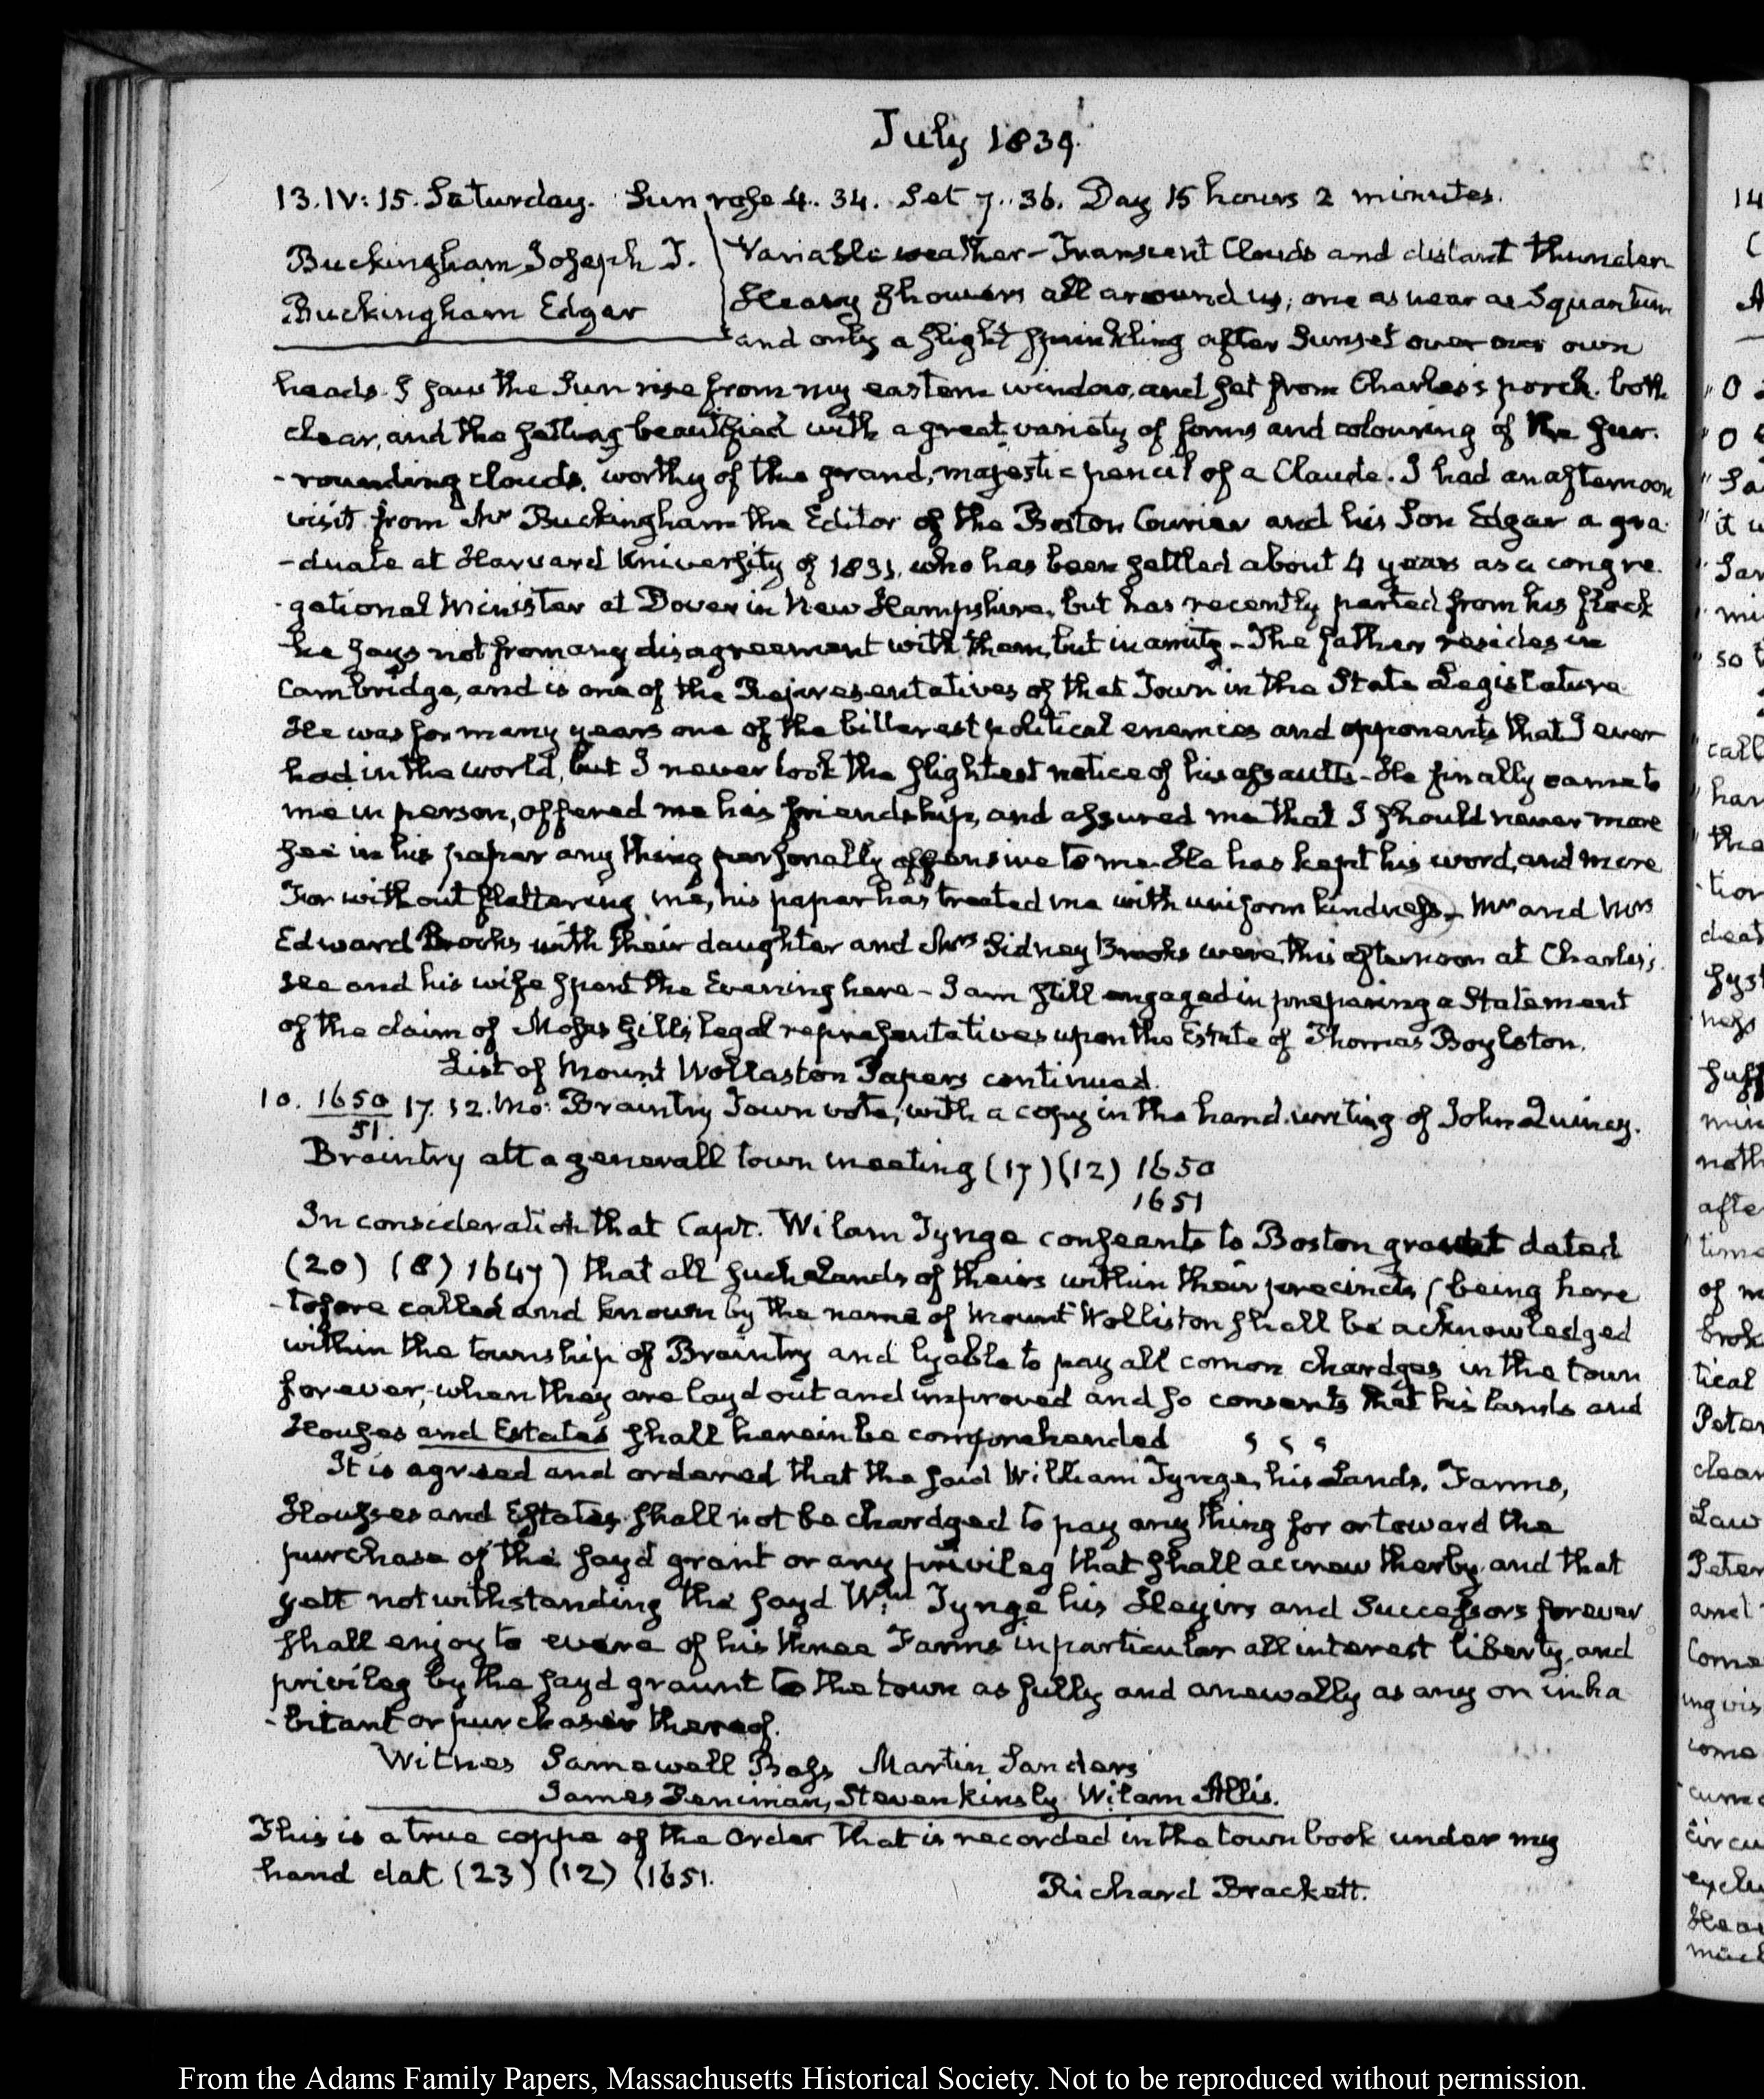 July 1839.
13. IV: 15. Saturday. Sun rose 4.. 34. Set 7.. 36. Day 15 hours 2 minutes.
Buckingham, Joseph T.
Buckingham Edgar
Variable weather – Transient Clouds and distant thunder
Heavy showers all around us; one as near as Squantum
and only a slight sprinkling after Sunset over our own
heads. I saw the Sun rise from my eastern window, and set from Charles's porch. both
clear, and the setting beautified with a great variety of forms and colouring of the sur-
-rounding clouds, worthy of the grand, majestic pencil of a Claude. I had an afternoon
visit from Mr Buckingham the Editor of the Boston Courier and his Son Edgar a gra-
-duate at Harvard University of 1831. who has been settled about 4 years as a congre-
-gational Minister at Dover in New Hampshire, but has recently parted from his flock
he says not from any disagreement with them, but in amity – The father resides in
Cambridge, and is one of the Representatives of that Town in the State Legislature
He was for many years one of the bitterest political enemies and opponents that I ever
had in the world, but I never took the slightest notice of his assaults – He finally came to
me in person, offered me his friendship, and assured me that I should never more
see in his paper any thing personally offensive to me. He has kept his word, and more
For without flattering me, his paper has treated me with uniform kindness – Mr and Mrs
Edward Brooks with their daughter and Mrs Sidney Brooks were this afternoon at Charles's.
He and his wife spent the Evening here – I am still engaged in preparing a Statement
of the claim of Moses Gill's legal representatives upon the Estate of Thomas Boylston.
List of Mount Wollaston Papers continued.
10. 1650/51. 17. 12. Mo: Braintry Town vote, with a copy in the hand-writing of John Quincy.
Braintry att a generall town meeting (17) (12) 1650
1651
In consideration that Capt. Wilam Tynge conseants to Boston graunt dated
(20) (8) 1647) that all such Lands of theirs within their precincts (being here
-tofore called and known by the name of Mount Wolliston shall be acknowledged
within the township of Braintry and lyable to pay all comon chardges in the town
forever, when they are layd out and improved and so consents that his lands and
Houses and Estates shall herein be comprehended
It is agreed and ordered that the said William Tynge, his Lands, Farms,
Housses and Estates shall not be chardged to pay any thing for or toward the
purchase of the sayd grant or any privileg that shall accrew therby, and that
yett notwithstanding the sayd Wm Tynge his Heyirs and Successors forever
shall enjoy to evere of his three Farms in particular all interest liberty and
privileg by the sayd graunt to the town as fully and anewally as any on inha
-bitant or purchaser thereof.
Witnes Samewell Bass Martin Sanders
James Peniman, Steven Kinsly Wilam Allis.
This is a true coppe of the Order that is recorded in the town book under my
hand dat (23) (12) (1651.
Richard Brackett.
From the Adams Family Papers, Massachusetts Historical Society. Not to be reproduced without permission.